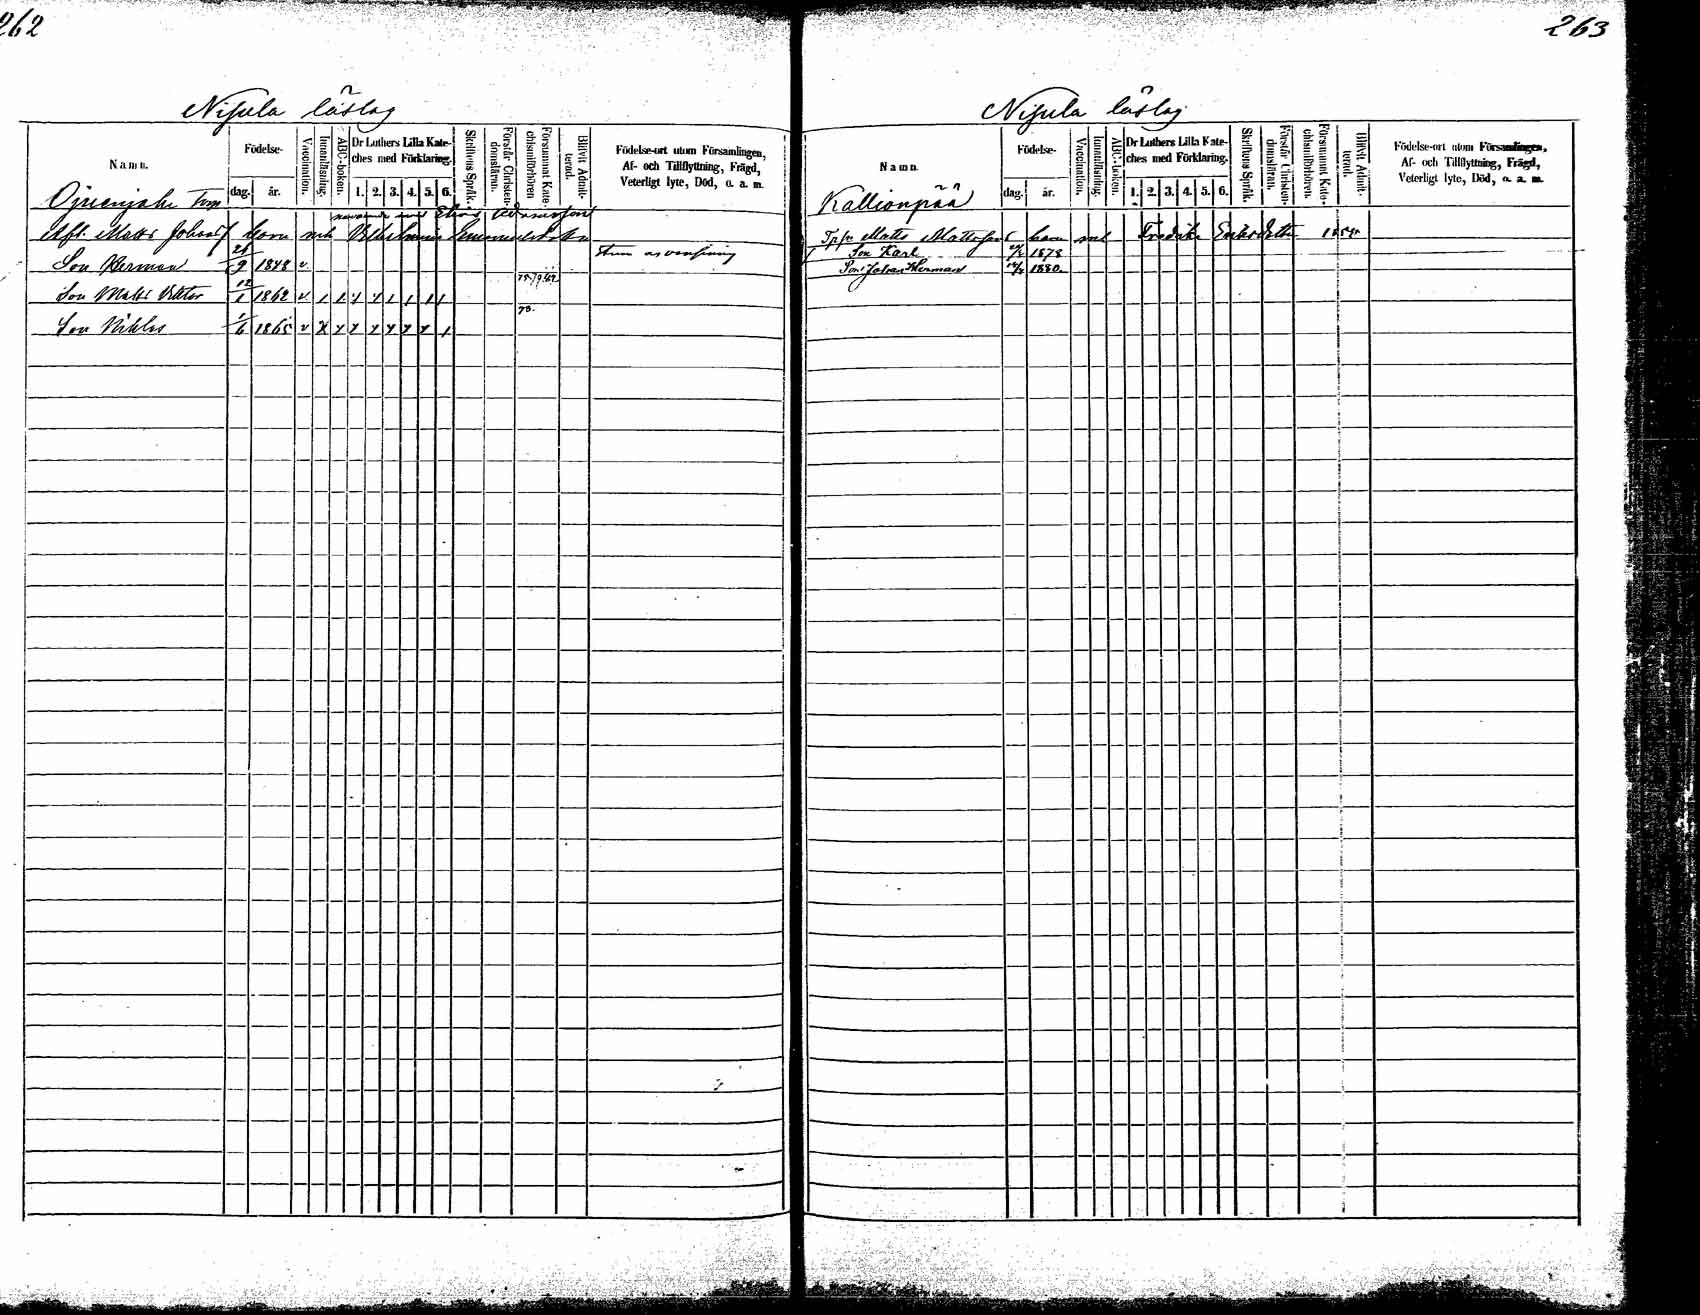 262
Nisula läslag
Namn.
Födelse-
dag. år.
Vaccination.
Innanläsning.
ABC-boken.
Dr Luthers Lilla Kate-
ches med Förklaring.
1. 2. 3. 4. 5. 6.
Skriftens Språk.
Förstår Christen-
domsläran.
Försummat Kate-
chismiförhören
Blifvit Admit-
terad.
Födelse-ort utom Församlingen,
Af- och Tillflyttning, Frägd,
Veterligt lyte, Död, o. a. m.
Ojrienjahe Torp
Elias Adamsson
Matts Johans barn med Vilhelmina
Son Herman 9 1848 v
75. 79. 82
Son Matts Viktor 12/1 1862 v
78.
Son Niklas 1/6 1865 v
263
Nisula läslag
Namn.
Födelse-
dag. år.
Vaccination.
Innanläsning.
ABC-boken.
Dr Luthers Lilla Kate-
ches med Förklaring.
1. 2. 3. 4. 5. 6.
Skriftens Språk.
Förstår Christen-
domsläran.
Försummat Kate-
chismiförhören.
Blifvit Admit-
terad.
Födelse-ort utom Församlingen,
Af- och Tillflyttning, Frägd,
Veterligt lyte, Död, o. a. m.
Kallionpää
Matts Mattsson barn med Fredrika Eriksdotter
Son Karl 1878
Son Johan Herman 1880.